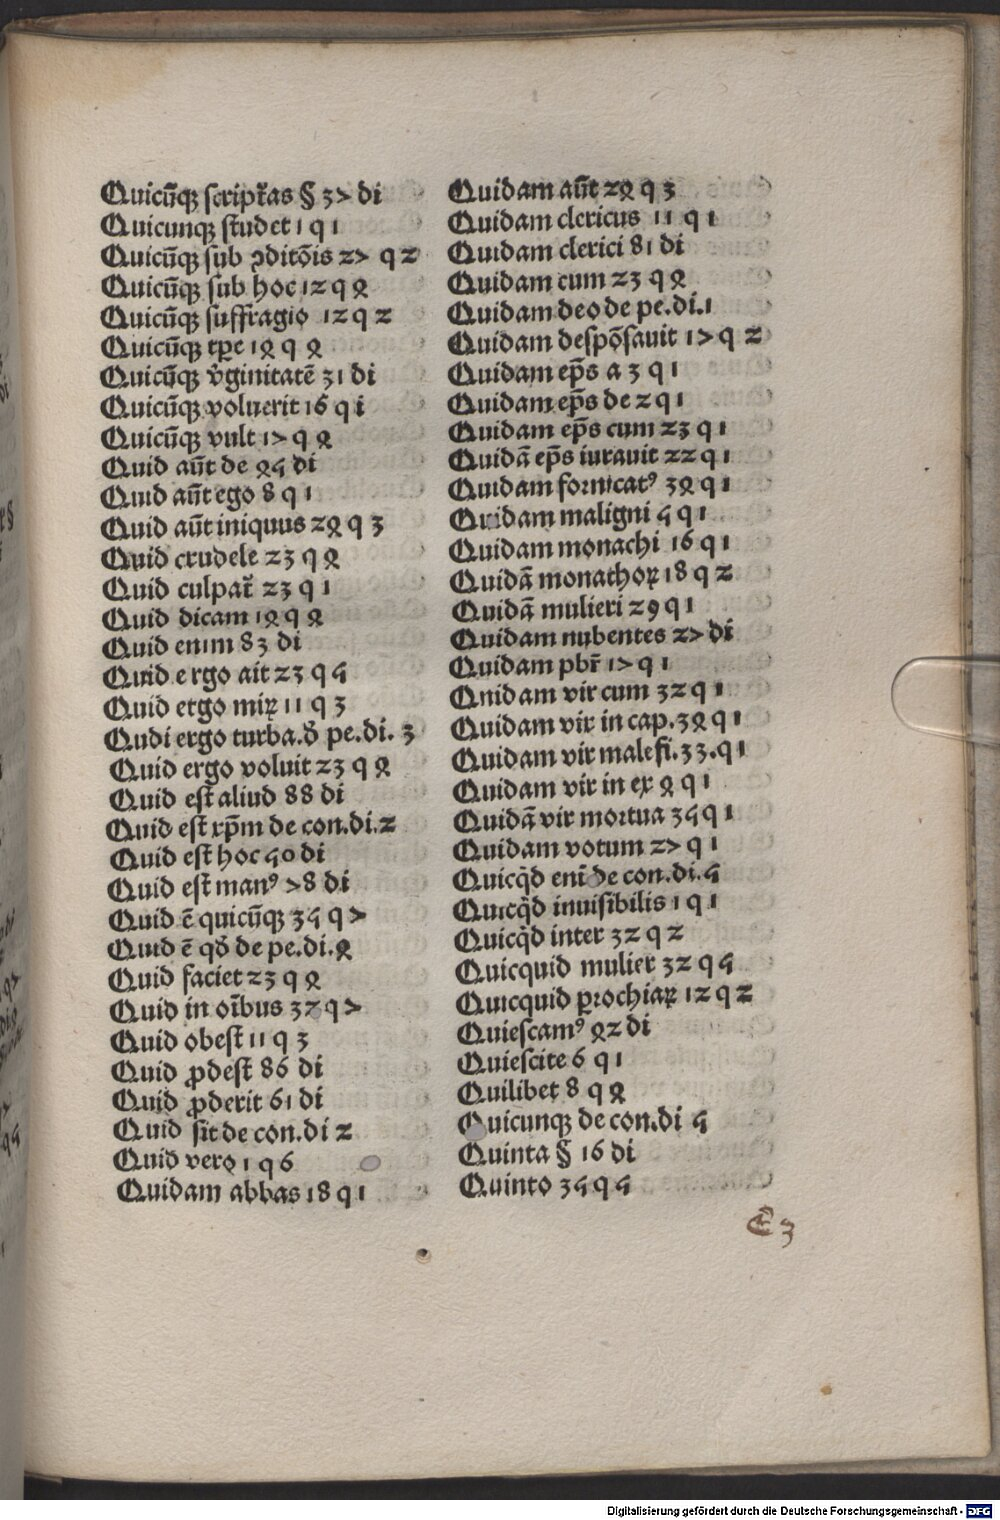 Quicūqꝫ scripťas § 37 di
Quicunqꝫ studet 1 q 1
Quicūqꝫ sub ꝯditōis 27 q 2
Quicūqꝫ sub hoc 12 q 4
Quicūqꝫ suffragio 12 q 2
Quicūqꝫ tꝑe 14 q 4
Quicūqꝫ v̓ginitatē 31 di
Quicūqꝫ voluerit 16 q i
Quicūqꝫ vult 17 q 4
Quid aūt de 45 di
Quid aūt ego 8 q 1
Quid aūt iniquus 24 q 3
Quid crudele 23 q 4
Quid culpať 23 q 1
Quid dicam 14 q 4
Quid enim 83 di
Quid e rgo ait 23 q 5
Quid ergo miꝝ 11 q 3
Qudi ergo turba.d̓ pe.di. 3
Quid ergo voluit 23 q 4
Quid est aliud 88 di
Quid est xp̄m de con.di.2
Quid est hoc 50 di
Quid est manꝰ 78 di
Quid ē quicūqꝫ 35 q 7
Quid ē qd̓ de pe.di.4
Quid faciet 23 q 4
Quid in oībus 32 q 7
Quid obest 11 q 3
Quid ꝓdest 86 di
Quid ꝓderit 61 di
Quid sit de con.di 2
Quid vero 1 q 6
Quidam abbas 18 q 1
Quidam aūt 24 q 3
Quidam clericus 11 q 1
Quidam clerici 81 di
Quidam cum 23 q 4
Quidam deo de pe.di.1
Quidam despōsauit 17 q 2
Quidam ep̄s a 3 q 1
Quidam ep̄s de 2 q 1
Quidam ep̄s cum 23 q 1
Quidā ep̄s iurauit 22 q 1
Quidam fornicatꝰ 34 q 1
Quidam maligni 5 q 1
Quidam monachi 16 q 1
Quidā monachoꝝ 18 q 2
Quidā mulieri 29 q 1
Quidam nubentes 27 di
Quidam pbr̄ 17 q 1
Qnidam vir cum 32 q 1
Quidam vir in cap.34 q 1
Quidam vir malefi.33.q 1
Quidam vir in ex 4 q 1
Quidā vir mortua 35 q 1
Quidam votum 27 q 1
Quicq̇d enī de con.di.5
Quicq̇d inuisibilis 1 q 1
Quicq̇d inter 32 q 2
Quicquid mulier 32 q 5
Quicquid ꝑrochiaꝝ 12 q 2
Quiescamꝰ 42 di
Quiescite 6 q 1
Quilibet 8 q 4
Quicunqꝫ de con.di 5
Quinta § 16 di
Quinto 35 q 5
E 3
Digitalisierung gefördert durch die Deutsche Forschungsgemeinschaft - DFG